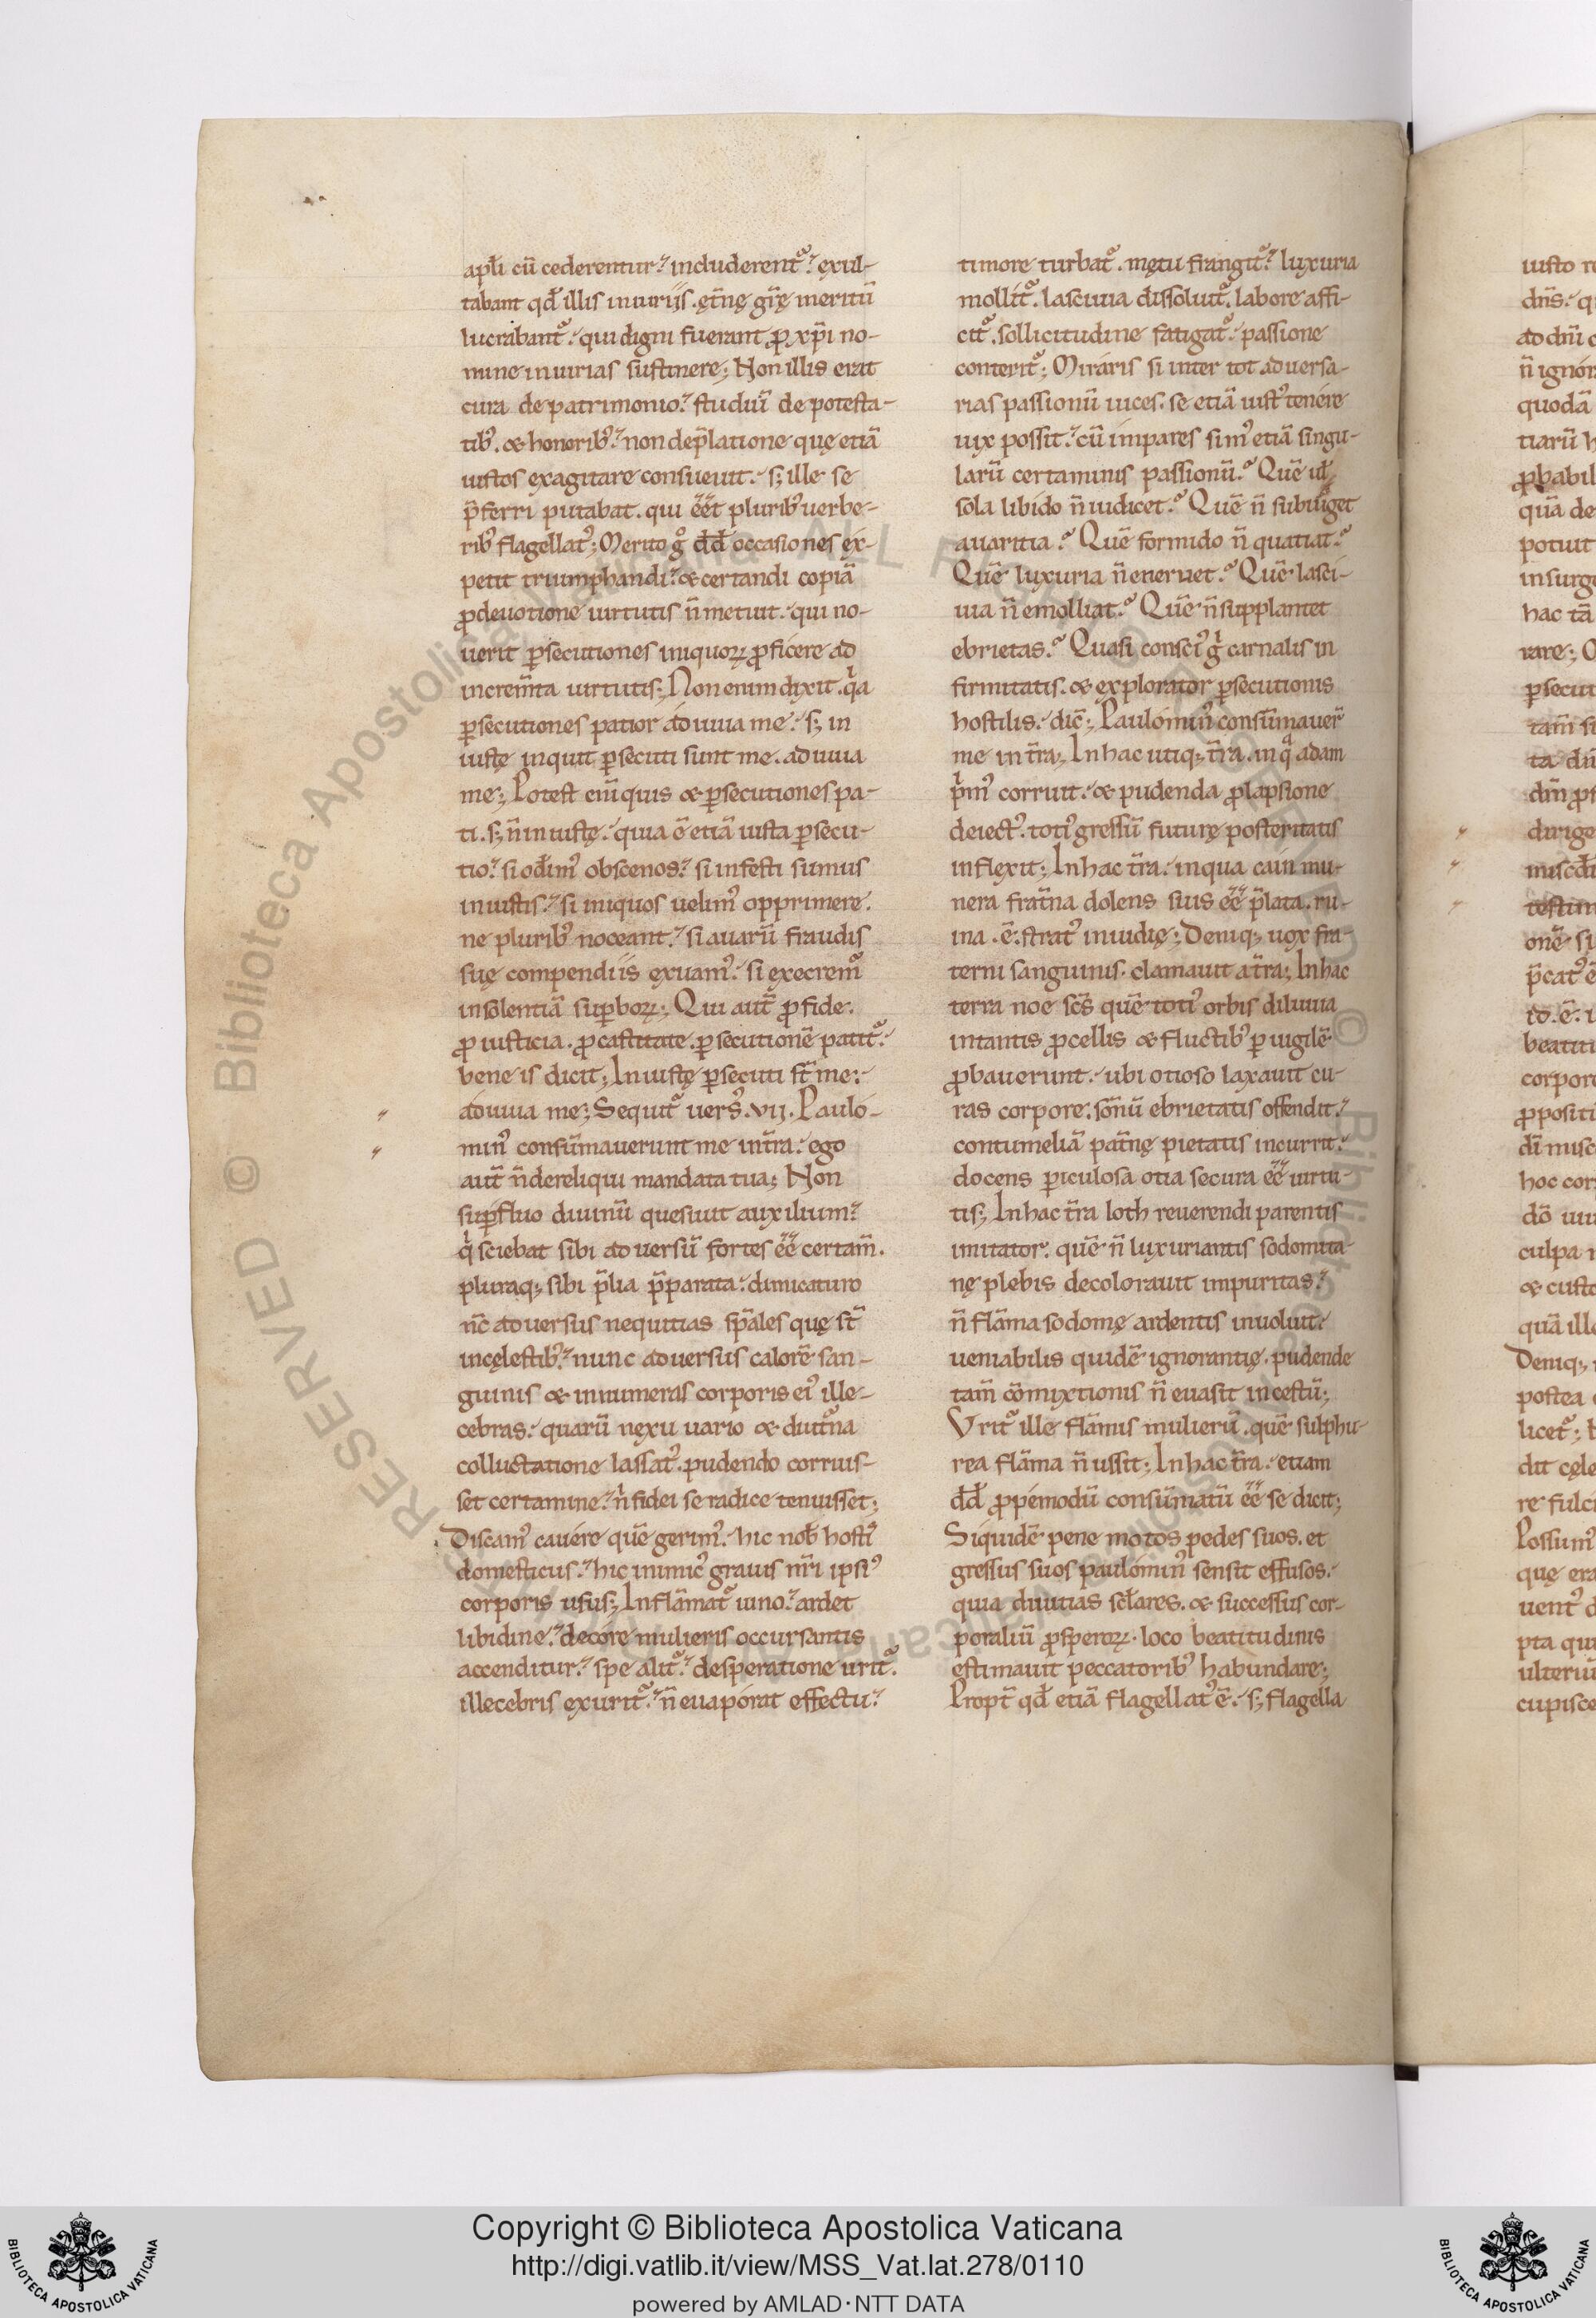 apłi cū cederentur? includerent᷑? exul-
tabant qđ illis iniuriis. ęt̄nę gr̄ę meritū
lucrabant᷑. qui digni fuerant ꝓ xp̄i no-
mine iniurias sustinere; Non illis erat
cura de patrimonio? studiū de potesta-
tibꝰ. & honoribꝰ? non de p̄latione quę etiā
iustos exagitare consueuit. s; ille se
p̄ferri putabat. qui ēēt pluribꝰ uerbe-
ribꝰ flagellatꝰ; Merito gͦ dđ occasiones ex-
petit triumphandi? & certandi copiā
ꝓ deuotione uirtutis n̄ metuit. qui no-
uerit ꝑsecutiones iniquoꝝ ꝓficere ad
increm̄ta uirtutis; Non enim dixit. qͥa
ꝑsecutiones patior adiuua me. s; in
iustę inquit ꝑsecuti sunt me. adiuua
me; Potest eni̅ quis & ꝑsecutiones pa-
ti. s; n̄ iniustę. quia ē etiā iusta ꝑsecu-
tio? si odimꝰ obscenos? si infesti sumus
iniustis? si iniquos uelimꝰ opprimere.
ne pluribꝰ noceant? si auarū fraudis
suę compendiis exuamꝰ. si execrem᷑
insolentiā suꝑboꝝ; Qui aut̄ ꝓ fide.
ꝓ iusticia. ꝓ castitate. ꝑsecutionē patit᷑.
bene is dicit; Iniustę ꝑsecuti st̄ me.
adiuua me; Sequit᷑ uersꝰ. vij. Paulo-
minꝰ consūmauerunt me in t̄ra. ego
aut̄ n̄ dereliqui mandata tua; Non
suꝑfluo diuinū quesiuit auxilium?
qͥ sciebat sibi aduersū fortes ēē certam̄.
pluraq; sibi p̄lia p̄parata. dimicaturo
nc̄ aduersus nequitias sp̄ales quę st̄
in cęlestibꝰ? nunc aduersus calorē san-
guinis & innumeras corporis eiꝰ ille-
cebras. quarū nexu uario & diut̄na
colluctatione lassatꝰ. pudendo corruis-
set certamine? nͥ fidei se radice tenuisset;
Discamꝰ cauere quē gerimꝰ. hic nob̄ hostꝭ
domesticus? hic inimicꝰ grauis nr̄i ipsiꝰ
corporis usus; Inflāmat᷑ uino? ardet
libidine? decore mulieris occursantis
accenditur? spe alit᷑? desperatione urit᷑.
illecebris exurit᷑? n̄ euaporat effectu?
timore turbat᷑. metu frangit᷑? luxuria
mollit᷑. lasciuia dissoluit᷑. labore affi-
cit᷑. sollicitudine fatigat᷑. passione
conterit᷑; Miraris si inter tot aduersa-
rias passionū uices. se etiā iustꝰ tenere
uix possit? cū impares simꝰ etiā singu-
larū certaminis passionū? Quē uł
sola libido n̄ iudicet? Quē n̄ subiuget
auaritia? Quē formido n̄ quatiat?
Quē luxuria n̄ eneruet? Quē lasci-
uia n̄ emolliat? Quē n̄ supplantet
ebrietas? Quasi consciꝰ gͥ carnalis in
firmitatis. & explorator ꝑsecutionis
hostilis. dic̄; Paulominꝰ consūmauer̄
me in t̄ra; In hac utiq; t̄ra. in qͣ adam
pͥmꝰ corruit. & pudenda ꝓlapsione
deiectꝰ. totiꝰ gressū futurę posteritatis
inflexit; In hac t̄ra. in qua cain mu-
nera frat̄na dolens suis ēē p̄lata. ru-
ina .ē. stratꝰ inuidię; Deniq; uox fra-
terni sanguinis. clamauit a t̄ra; In hac
terra noe sc̄s quē totiꝰ orbis diluuia
intantis ꝓcellis & fluctibꝰ ꝑuigilē
ꝓbauerunt. ubi otioso laxauit cu-
ras corpore. sōnū ebrietatis offendit?
contumeliā pat̄nę pietatis incurrit.
docens ꝑiculosa otia secura ēē uirtu-
tis; In hac t̄ra loth reuerendi parentis
imitator. quē n̄ luxuriantis sodomita-
nę plebis decolorauit impuritas?
n̄ flāma sodomę ardentis inuoluit.
ueniabilis quidē ignorantię. pudende
tam̄ cōmixtionis n̄ euasit incestū;
Vrit᷑ ille flāmis mulierū. quē sulphu-
rea flāma n̄ ussit; In hac t̄ra. etiam
dđ ꝓpemodū consūmatū ēē se dicit;
Siquidē pene motos pedes suos. et
gressus suos paulominꝰ sensit effusos.
quia diuitias scłares. & successus cor-
poraliū ꝓsperoꝝ. loco beatitudinis
estimauit peccatoribꝰ habundare;
Propt̄ qđ etiā flagellatꝰ ē. s; flagella
Copyright © Biblioteca Apostolica Vaticana
http://digi.vatlib.it/view/MSS_Vat.lat.278/0110
powered by AMLAD·NTT DATA